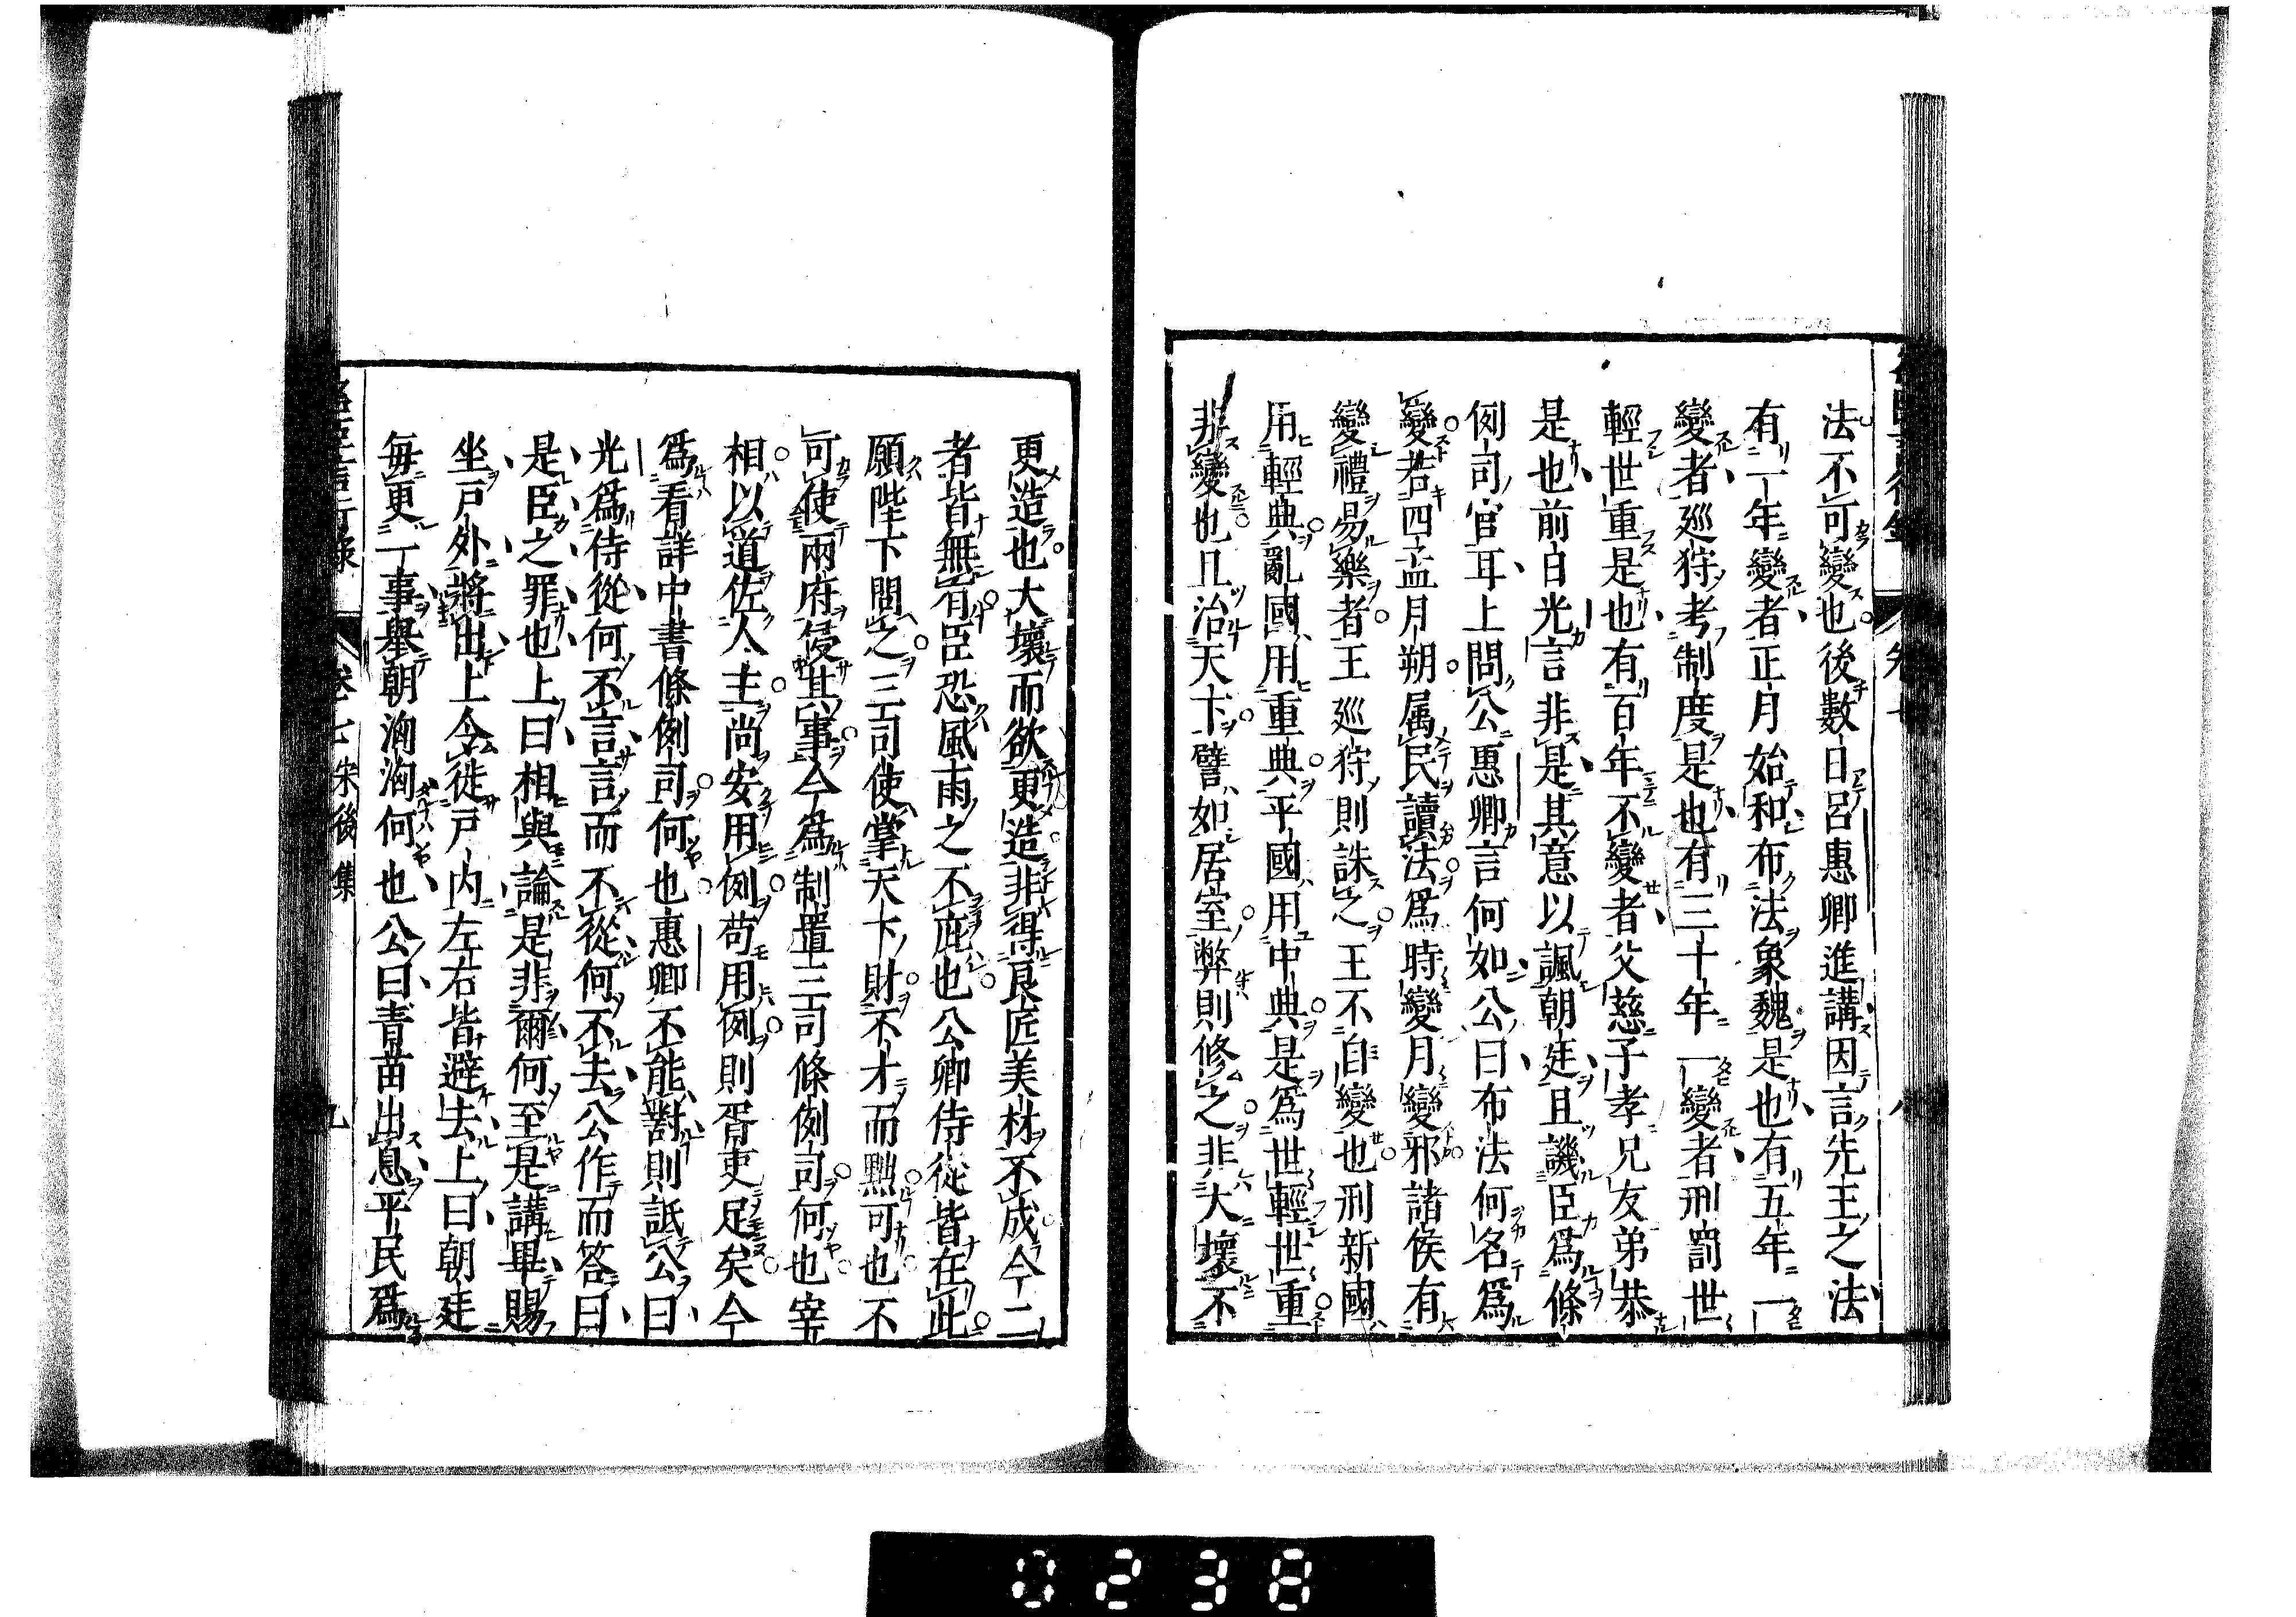 法不可變也後數日呂惠卿進講因言先王之法
有一年變者正月始和布法象魏是也有五年一
變者巡狩考制度是也有三十年一變者刑罰世
輕世重是也有百年不變者父慈子孝兄友弟恭
是也前日光言非是其意以諷朝廷且譏臣爲條
例司官耳上問公惠卿言何如公曰布法何名爲
變若四孟月朔属民讀法爲時變月變邪諸侯有
變禮易樂者王巡狩則誅之王不自變也刑新國
用輕典亂國用重典平國用中典是爲世輕世重
非變也且治天下譬如居室弊則修之非大壞不
更造也大壞而欲更造非得良匠美材不成今二
者皆無有臣恐風雨之不庇也公卿侍從皆在此
願陛下問之三司使掌天下財不才而黜可也不
可使兩府侵其事今爲制置三司條例司何也宰
相以道佐人主尚安用例苟用例則胥吏足矣今
爲看詳中書條例司何也惠卿不能對則詆公曰
光爲侍從何不言言而不從何不去公作而答曰
是臣之罪也上曰相與論是非爾何至是講畢賜
坐戸外將出上令徙戸内左右皆避去上曰朝廷
毎更一事舉朝洶洶何也公曰青苗出息平民爲
卷七 宋後集 九
0238